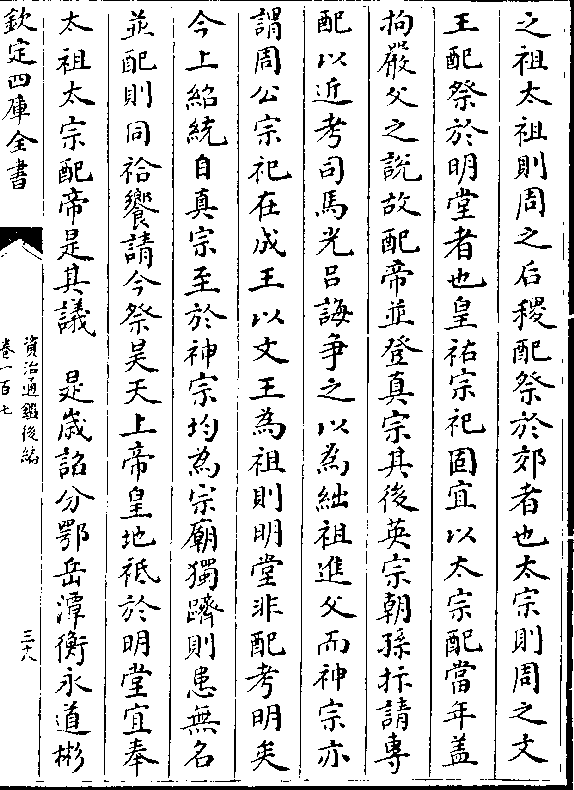 之祖太祖則周之后稷配祭於郊者也太宗則周之文
王配祭於明堂者也皇祐宗祀固宜以太宗配當年盖
拘嚴父之說故配帝並登真宗其後英宗朝孫抃請專
配以近考司馬光吕誨争之以為絀祖進父而神宗亦
謂周公宗祀在成王以文王為祖則明堂非配考明矣
今上紹統自真宗至於神宗均為宗廟獨躋則患無名
並配則同祫饗請今祭昊天上帝皇地祗於明堂宜奉
太祖太宗配帝是其議　是歲詔分鄂岳潭衡永道彬
欽定四庫全書
資治通鑑後編
卷一百七
三十八